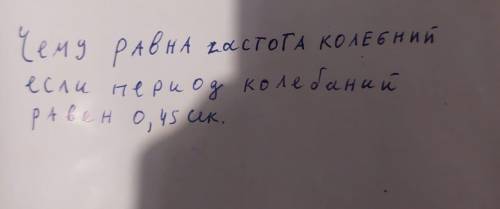 Чему равна частота колебний
если период колебаний
равен 0,45 сек.